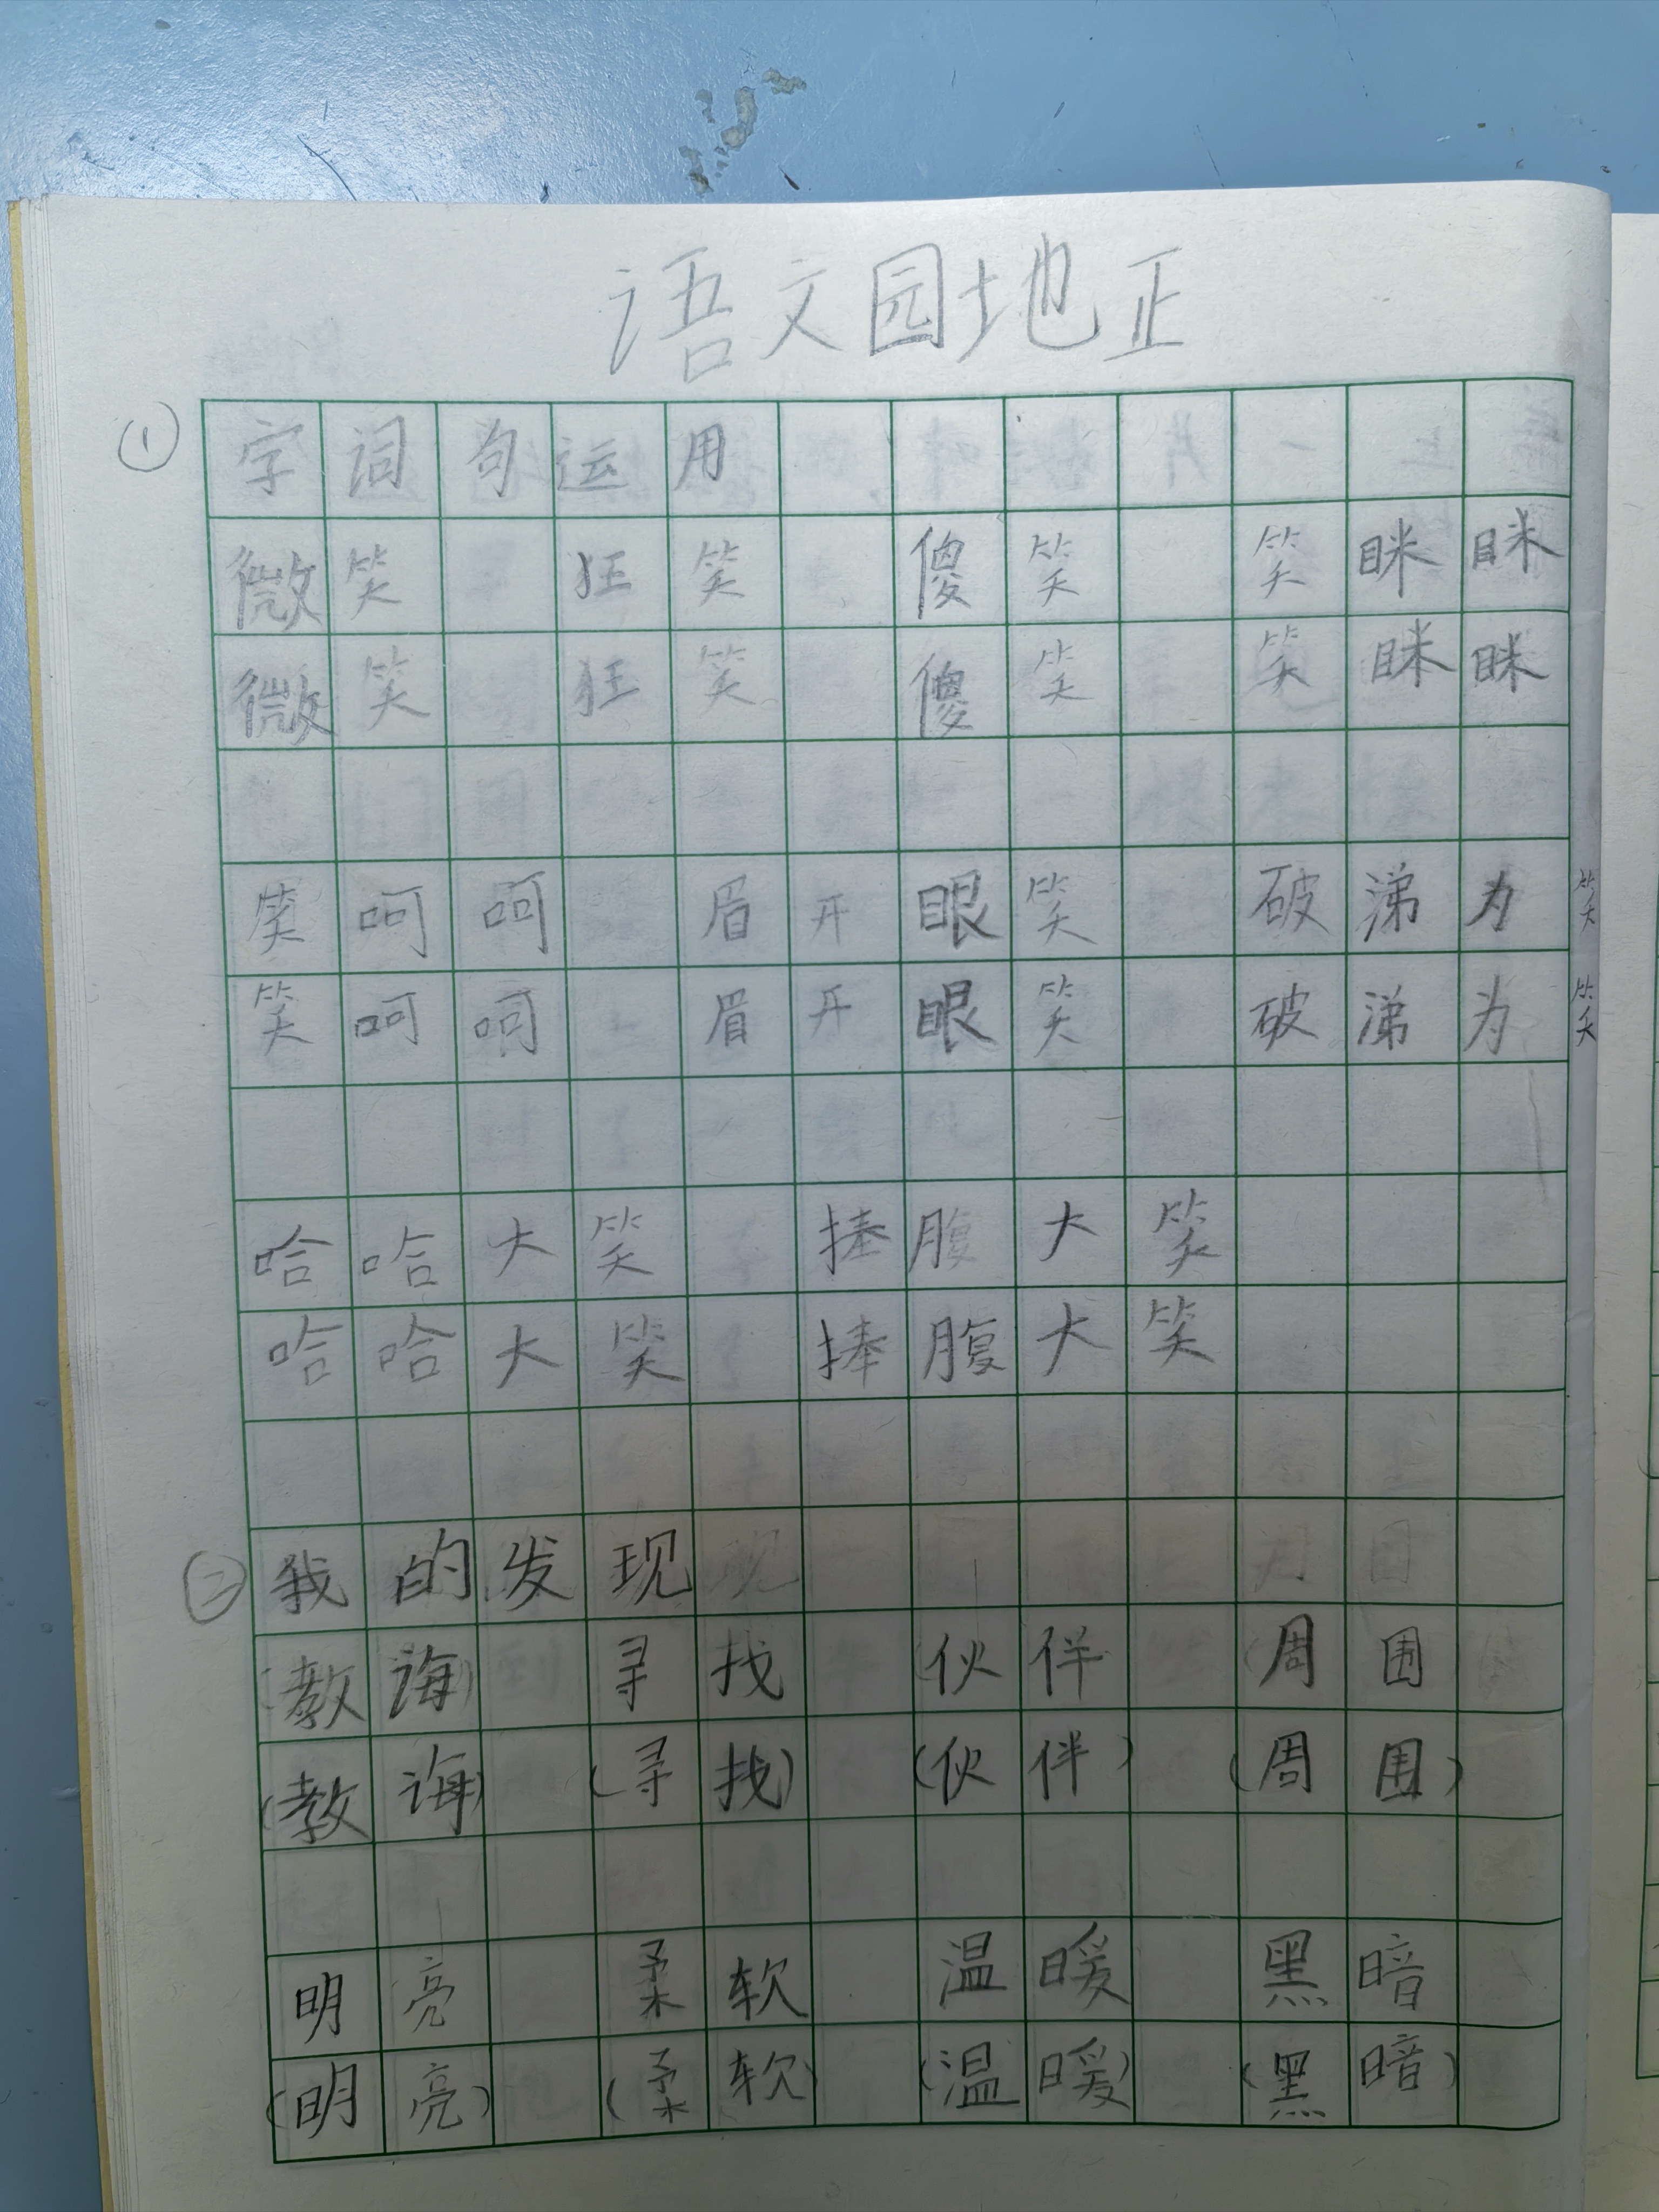 语文园地正
① 字词句运用
微笑 狂笑 傻笑 笑眯眯
微笑 狂笑 傻笑 笑眯眯
笑呵呵 眉开眼笑 破涕为笑
笑呵呵 眉开眼笑 破涕为笑
哈哈大笑 捧腹大笑
哈哈大笑 捧腹大笑
② 我的发现
(教诲) 寻找 (伙伴 (周围
(教诲) (寻找) (伙伴) (周围)
明亮 柔软 温暖 黑暗
(明亮) (柔软) (温暖) (黑暗)